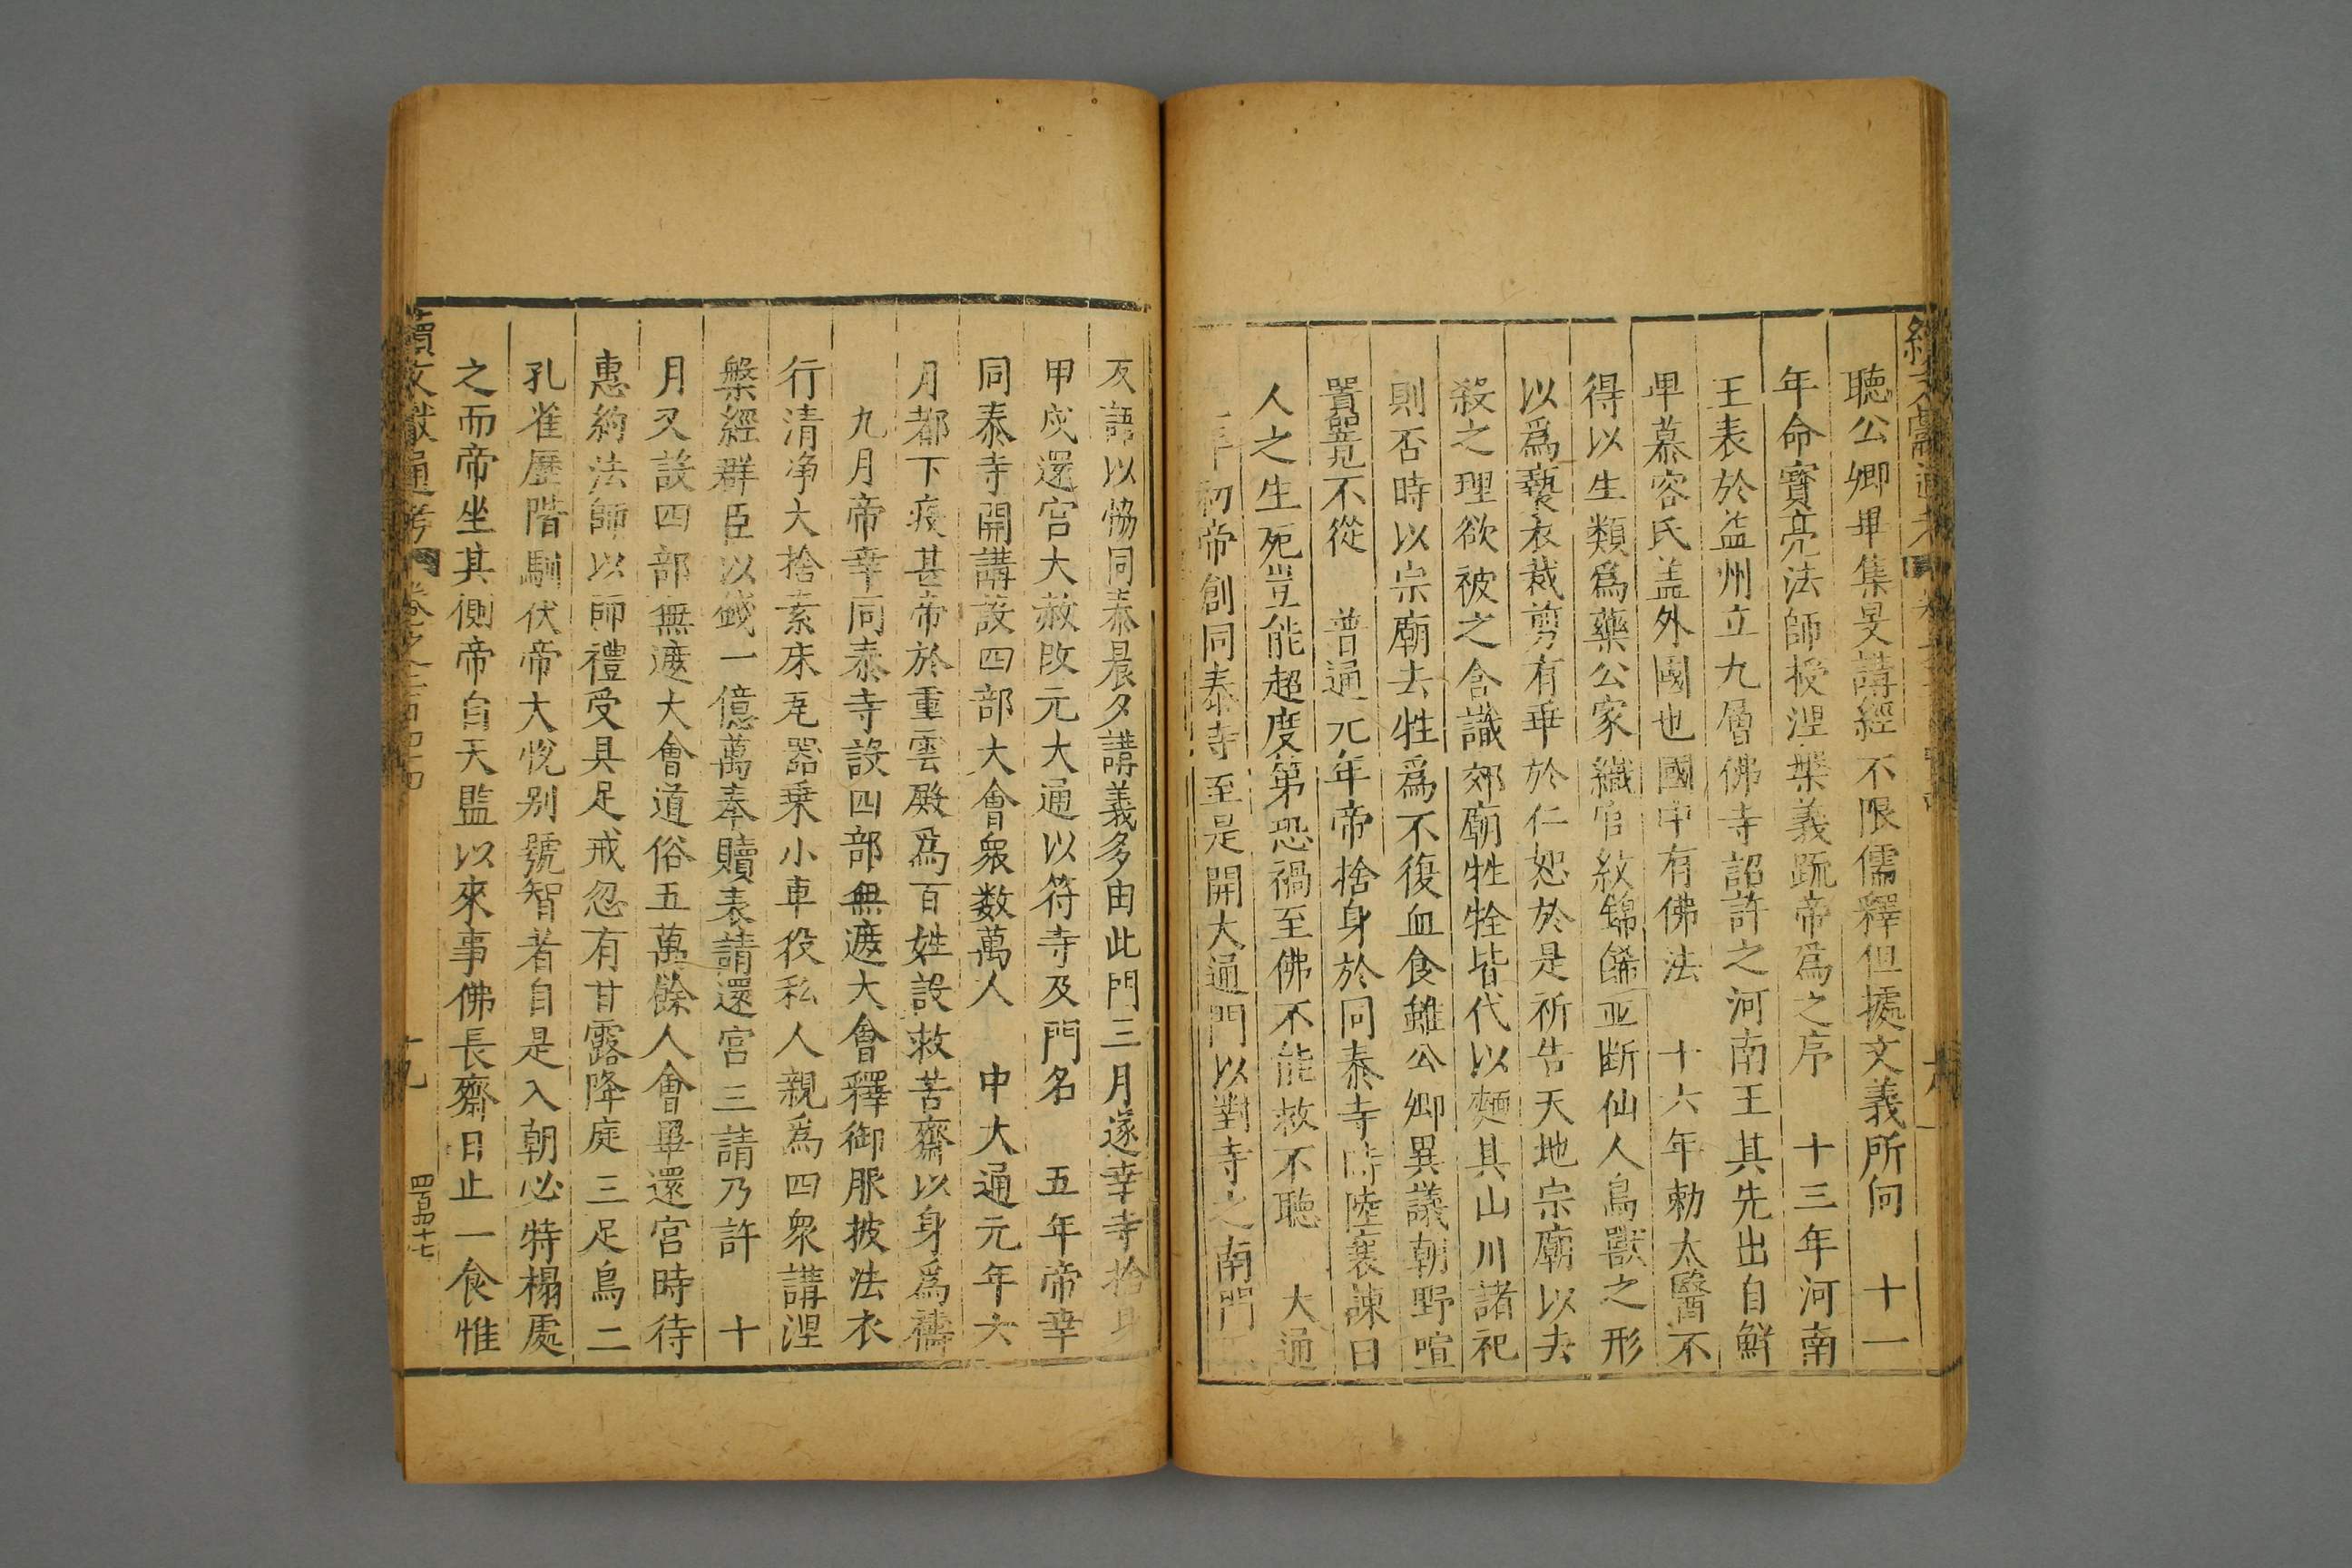 聽公卿畢集旻講經不限儒釋但據文義所向　十一
年命寶亮法師授湼槃義䟽帝爲之序　十三年河南
王表於益州立九層佛寺詔許之河南王其先出自鮮
卑慕容氏盖外國也國中有佛法　十六年勅太醫不
得以生類爲藥公家織官紋錦餙並断仙人鳥獸之形
以爲褻衣裁剪有乖於仁恕於是祈告天地宗廟以去
殺之理欲被之含識郊廟牲牷皆代以麵其山川諸祀
則否時以宗廟去牲爲不復血食雖公卿異議朝野喧
囂竟不從　普通元年帝捨身於同泰寺時陸襄諫曰
人之生死豈能超度第恐禍至佛不能救不聽　大通
初帝創同泰寺至是開大通門以對寺之南門
反語以恊同泰晨夕講義多由此門三月遂幸寺捨身
甲戌還宮大赦改元大通以符寺及門名　五年帝幸
同泰寺開講設四部大會衆数萬人　中大通元年六
月都下疫甚帝於重雲殿爲百姓設救苦齋以身爲禱
九月帝幸同泰寺設四部無遮大會釋御服披法衣
行清净大捨素床瓦器乗小車役私人親爲四衆講湼
槃經群臣以錢一億萬奉贖表請還宮三請乃許　十
月又設四部無遮大會道俗五萬餘人會畢還宮時待
惠約法師以師禮受具足戒忽有甘露降庭三足鳥二
孔雀歷階馴伏帝大悅别號智者自是入朝必特榻處
之而帝坐其側帝自天監以來事佛長齋日止一食惟
續文獻通考　卷之二百四十四　十九　四百四十七